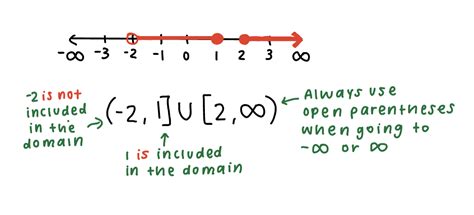 -∞ -3 -2 -1 0 1 2 3 ∞
-2 is not
included
in the
domain
(-2, 1] U [2, ∞)
1 is included
in the domain
Always use
open parentheses
when going to
-∞ or ∞